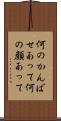 何のかんば
せあって何
の顔あって